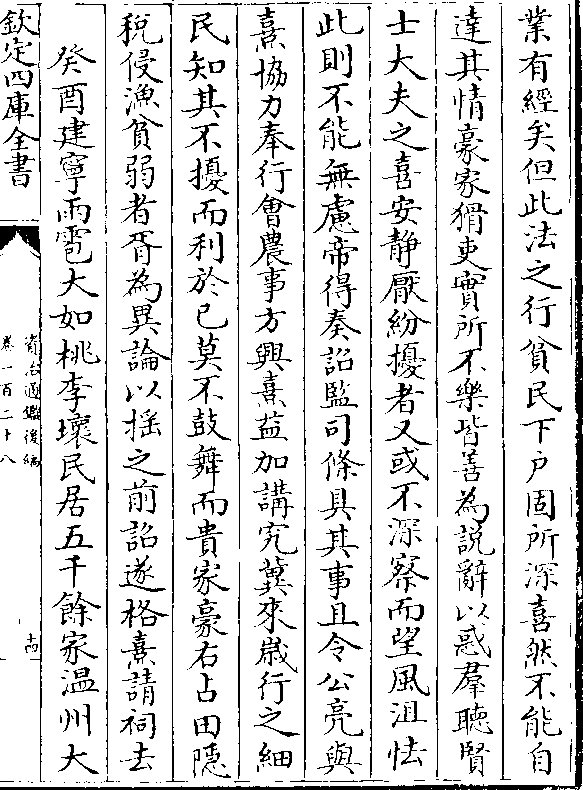 業有經矣但此法之行貧民下户固所深喜然不能自
達其情豪家猾吏實所不樂皆善為説辭以惑羣聽賢
士大夫之喜安靜厭紛擾者又或不深察而望風沮怯
此則不能無慮帝得奏詔監司條具其事且令公亮與
熹協力奉行會農事方興熹益加講究冀來歲行之細
民知其不擾而利於已莫不鼓舞而貴家豪右占田隱
稅侵漁貧弱者胥為異論以摇之前詔遂格熹請祠去
癸酉建寧雨雹大如桃李壞民居五千餘家温州大
欽定四庫全書
資治通鑑後編
卷一百二十八
十四